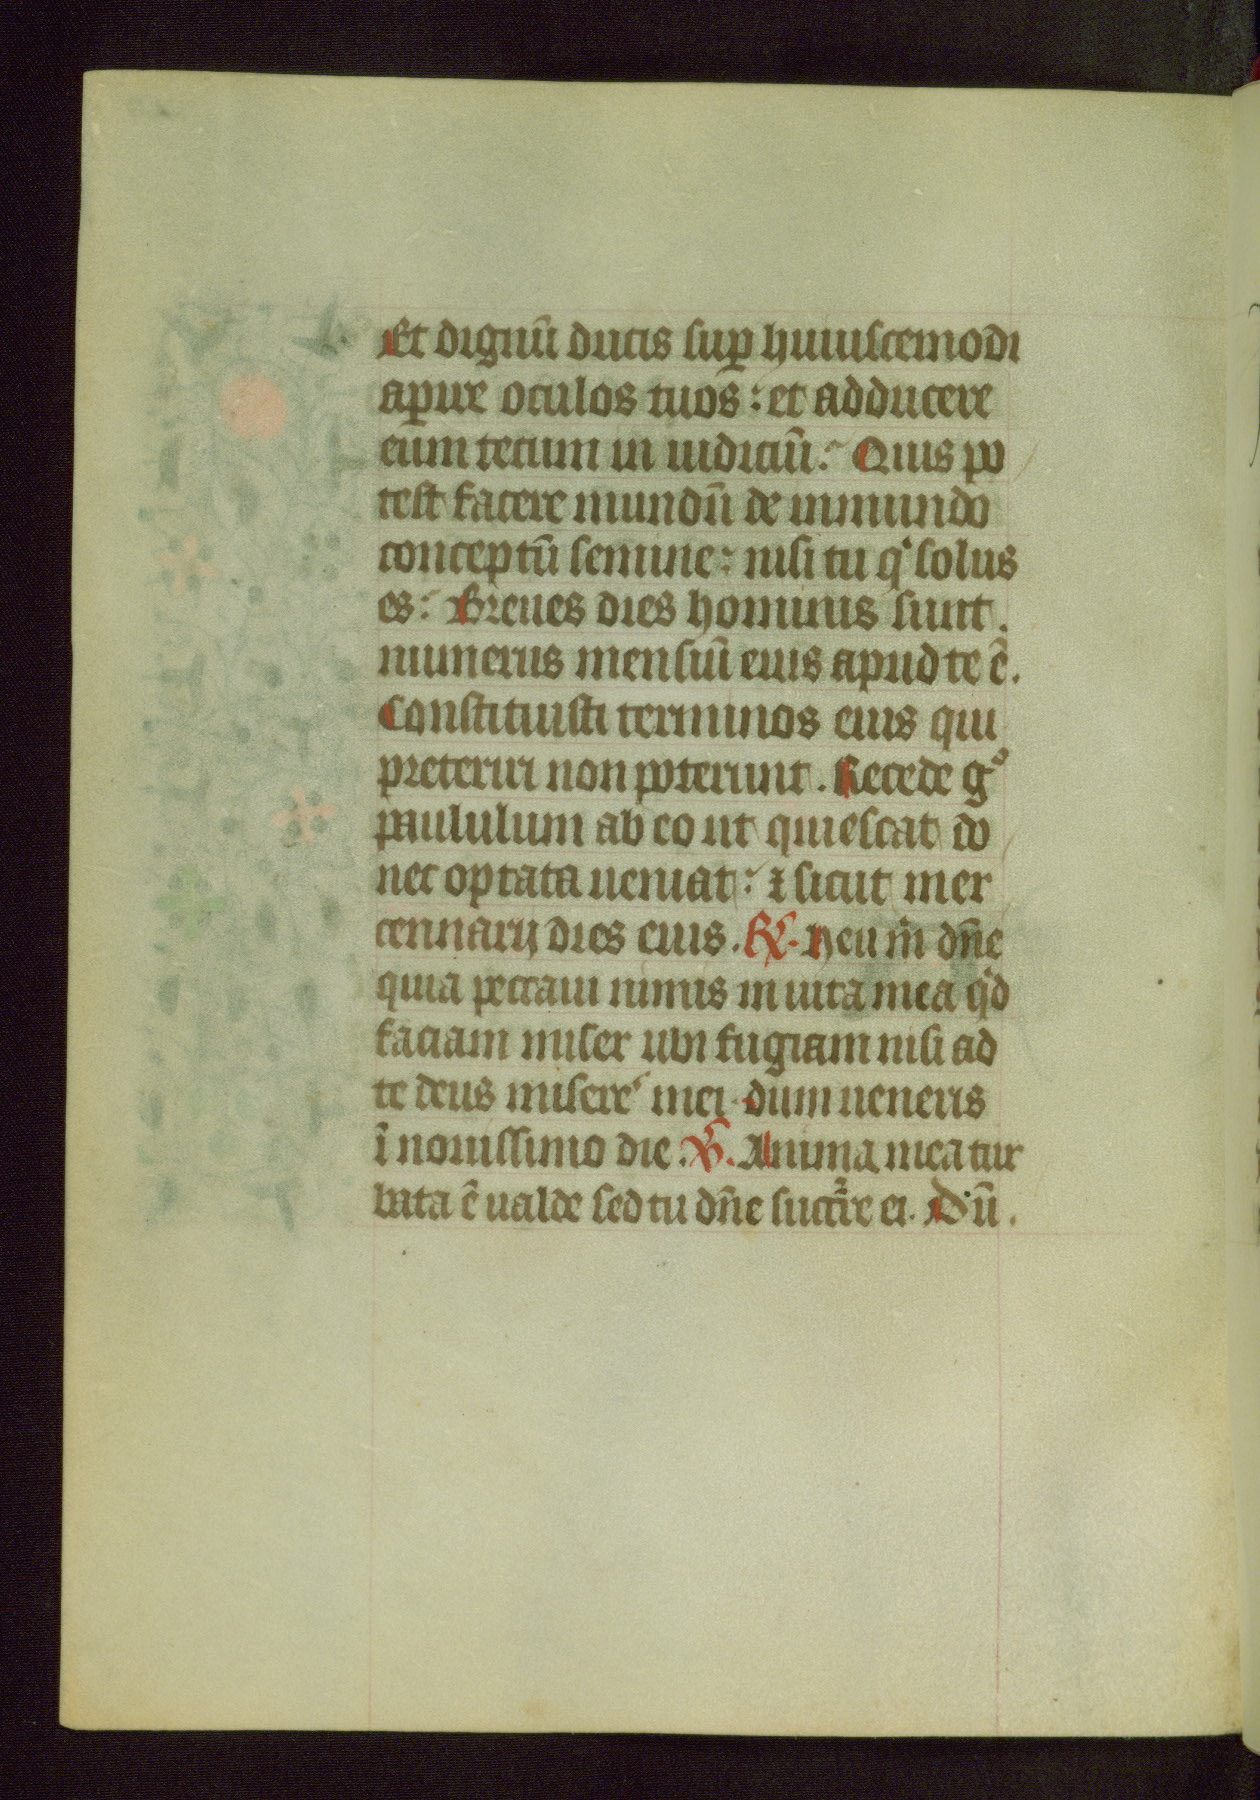 Et dignū ducis suꝑ huiuscemodi
aꝑire oculos tuos: et adducere
eum tecum in iudiciū. Quis po
test facere mundū de inmundo
conceptū semine: nisi tu qͥ solus
es: Breues dies hominis sunt.
numerus mensiū eius apud te ē.
Constituisti terminos eius qui
preteriri non poterunt. Recede gͦ
paululum ab eo ut quiescat do
nec optata ueniat: ⁊ sicut mer
cennarij dies eius. ℟. Heu m̄ dn̄e
quia peccaui nimis in uita mea qͥd
faciam miser ubi fugiam nisi ad
te deus misere᷑ mei dum ueneris
ī nouissimo die. ℣. Anima mea tur
bata ē ualde sed tu dn̄e succr̄re ei. Dū.